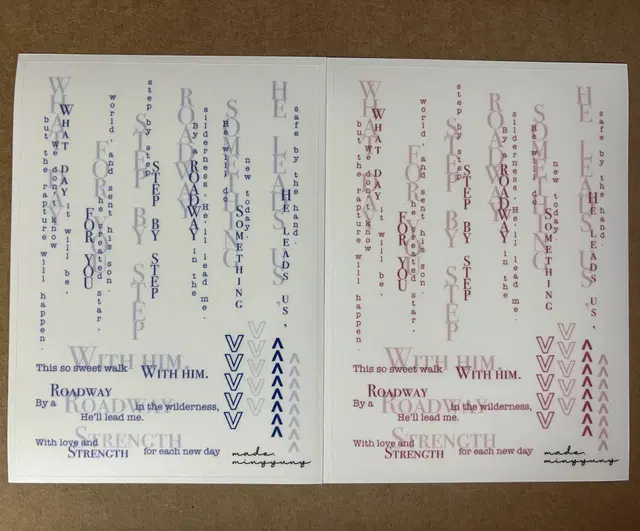 WHAT DAY
WHAT DAY it will be,
we don't know
but the rapture will happen.
world, and sent his son.
FOR YOU
he created star,
FOR YOU
step by step
STEP BY STEP
STEP BY STEP
ROADWAY
By a ROADWAY in the
silderness, He'll lead me.
SOMETHING
He will do
SOMETHING
new today.
HE LEADS US,
HE LEADS US,
safe by the hand.
WITH HIM.
This so sweet walk WITH HIM.
ROADWAY
ROADWAY
By a in the wilderness,
He'll lead me.
STRENGTH
With love and STRENGTH for each new day
made.
minyyuny
WHAT DAY
WHAT DAY it will be,
we don't know
but the rapture will happen.
world, and sent his son.
FOR YOU
he created star,
FOR YOU
step by step
STEP BY STEP
STEP BY STEP
ROADWAY
By a ROADWAY in the
silderness, He'll lead me.
SOMETHING
He will do
SOMETHING
new today.
HE LEADS US,
HE LEADS US,
safe by the hand.
WITH HIM.
This so sweet walk WITH HIM.
ROADWAY
ROADWAY
By a in the wilderness,
He'll lead me.
STRENGTH
With love and STRENGTH for each new day
made.
minyyuny